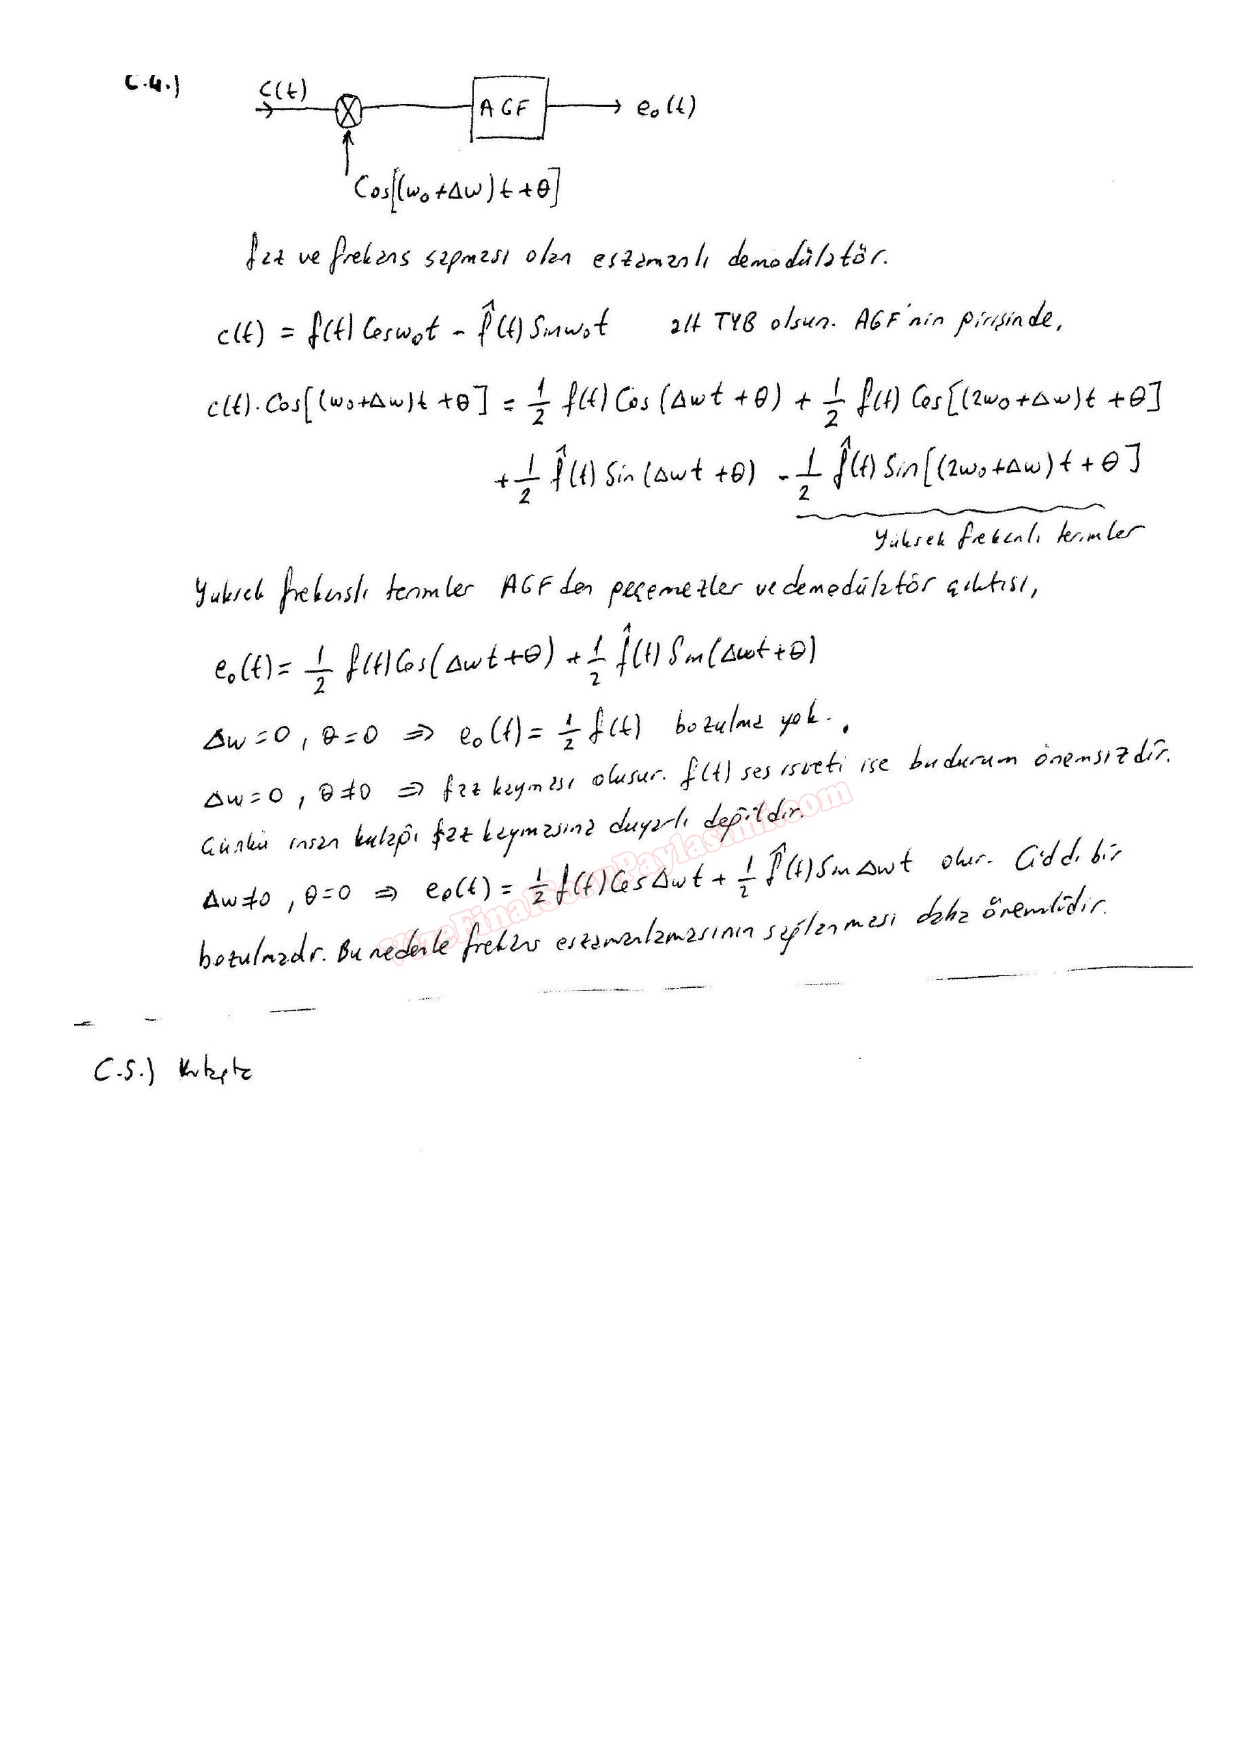 C.4.)
C(t)
AGF
e₀(t)
Cos[(w₀+Δw)t+θ]
faz ve frekans sapması olan eszamanlı demodülatör.
c(t) = f(t) Cosw₀t - f̂(t) Sinw₀t alt TYB olsun. AGF'nin girişinde,
c(t).Cos[(w₀+Δw)t+θ] = 1/2 f(t) Cos(Δwt+θ) + 1/2 f(t) Cos[(2w₀+Δw)t+θ]
+ 1/2 f̂(t) Sin(Δwt+θ) - 1/2 f̂(t) Sin[(2w₀+Δw)t+θ]
Yüksek frekanlı terimler
Yuksek frekanslı terimler AGF den geçemezler ve demodülatör çıktısı,
e₀(t) = 1/2 f(t) Cos(Δwt+θ) + 1/2 f̂(t) Sin(Δwt+θ)
Δw=0, θ=0 ⇒ e₀(t) = 1/2 f(t) bozulma yok.
Δw=0, θ≠0 ⇒ faz kayması olusur. f(t) ses isareti ise bu durum önemsizdir.
Günkü insan kulağı faz kaymasına duyarlı değildir.
Δw≠0, θ=0 ⇒ e₀(t) = 1/2 f(t) CosΔwt + 1/2 f̂(t) SinΔwt olur. Ciddi bir
bozulmadır. Bu nedenle frekans eszamanlamasının sağlanması daha önemlidir.
VizeFinalSoruPaylasimi.com
C.5.) Kitapta